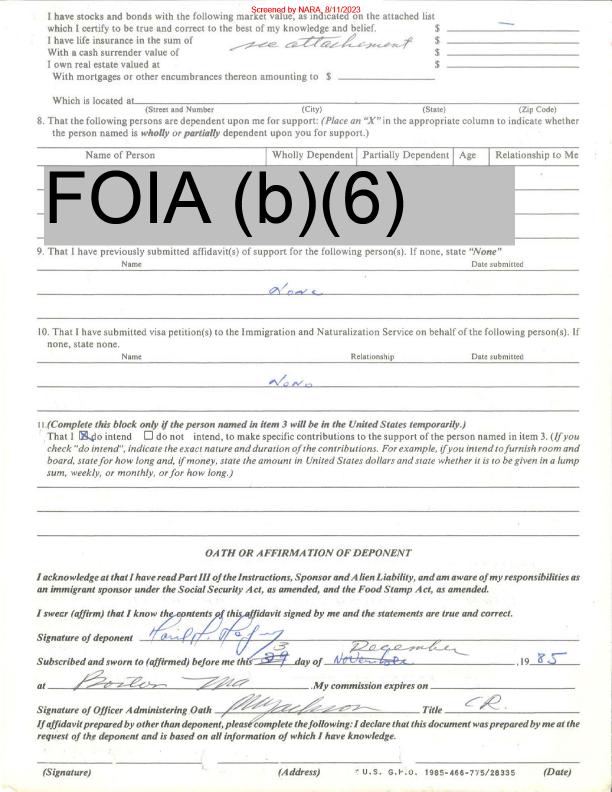 Screened by NARA, 8/11/2023
I have stocks and bonds with the following market value, as indicated on the attached list
which I certify to be true and correct to the best of my knowledge and belief. $ —
I have life insurance in the sum of $
see attachement
With a cash surrender value of $
I own real estate valued at $
With mortgages or other encumbrances thereon amounting to $
Which is located at
(Street and Number) (City) (State) (Zip Code)
8. That the following persons are dependent upon me for support: (Place an "X" in the appropriate column to indicate whether
the person named is wholly or partially dependent upon you for support.)
Name of Person Wholly Dependent Partially Dependent Age Relationship to Me
FOIA (b)(6)
9. That I have previously submitted affidavit(s) of support for the following person(s). If none, state "None"
Name Date submitted
None
10. That I have submitted visa petition(s) to the Immigration and Naturalization Service on behalf of the following person(s). If
none, state none.
Name Relationship Date submitted
None
11.(Complete this block only if the person named in item 3 will be in the United States temporarily.)
That I ☒ do intend ☐ do not intend, to make specific contributions to the support of the person named in item 3. (If you
check "do intend", indicate the exact nature and duration of the contributions. For example, if you intend to furnish room and
board, state for how long and, if money, state the amount in United States dollars and state whether it is to be given in a lump
sum, weekly, or monthly, or for how long.)
OATH OR AFFIRMATION OF DEPONENT
I acknowledge at that I have read Part III of the Instructions, Sponsor and Alien Liability, and am aware of my responsibilities as
an immigrant sponsor under the Social Security Act, as amended, and the Food Stamp Act, as amended.
I swear (affirm) that I know the contents of this affidavit signed by me and the statements are true and correct.
Signature of deponent
3 December
Subscribed and sworn to (affirmed) before me this day of November ,19 85
at Boston Ma .My commission expires on
Signature of Officer Administering Oath Title CR.
If affidavit prepared by other than deponent, please complete the following: I declare that this document was prepared by me at the
request of the deponent and is based on all information of which I have knowledge.
(Signature) (Address) U.S. G.P.O. 1985-466-775/28335 (Date)